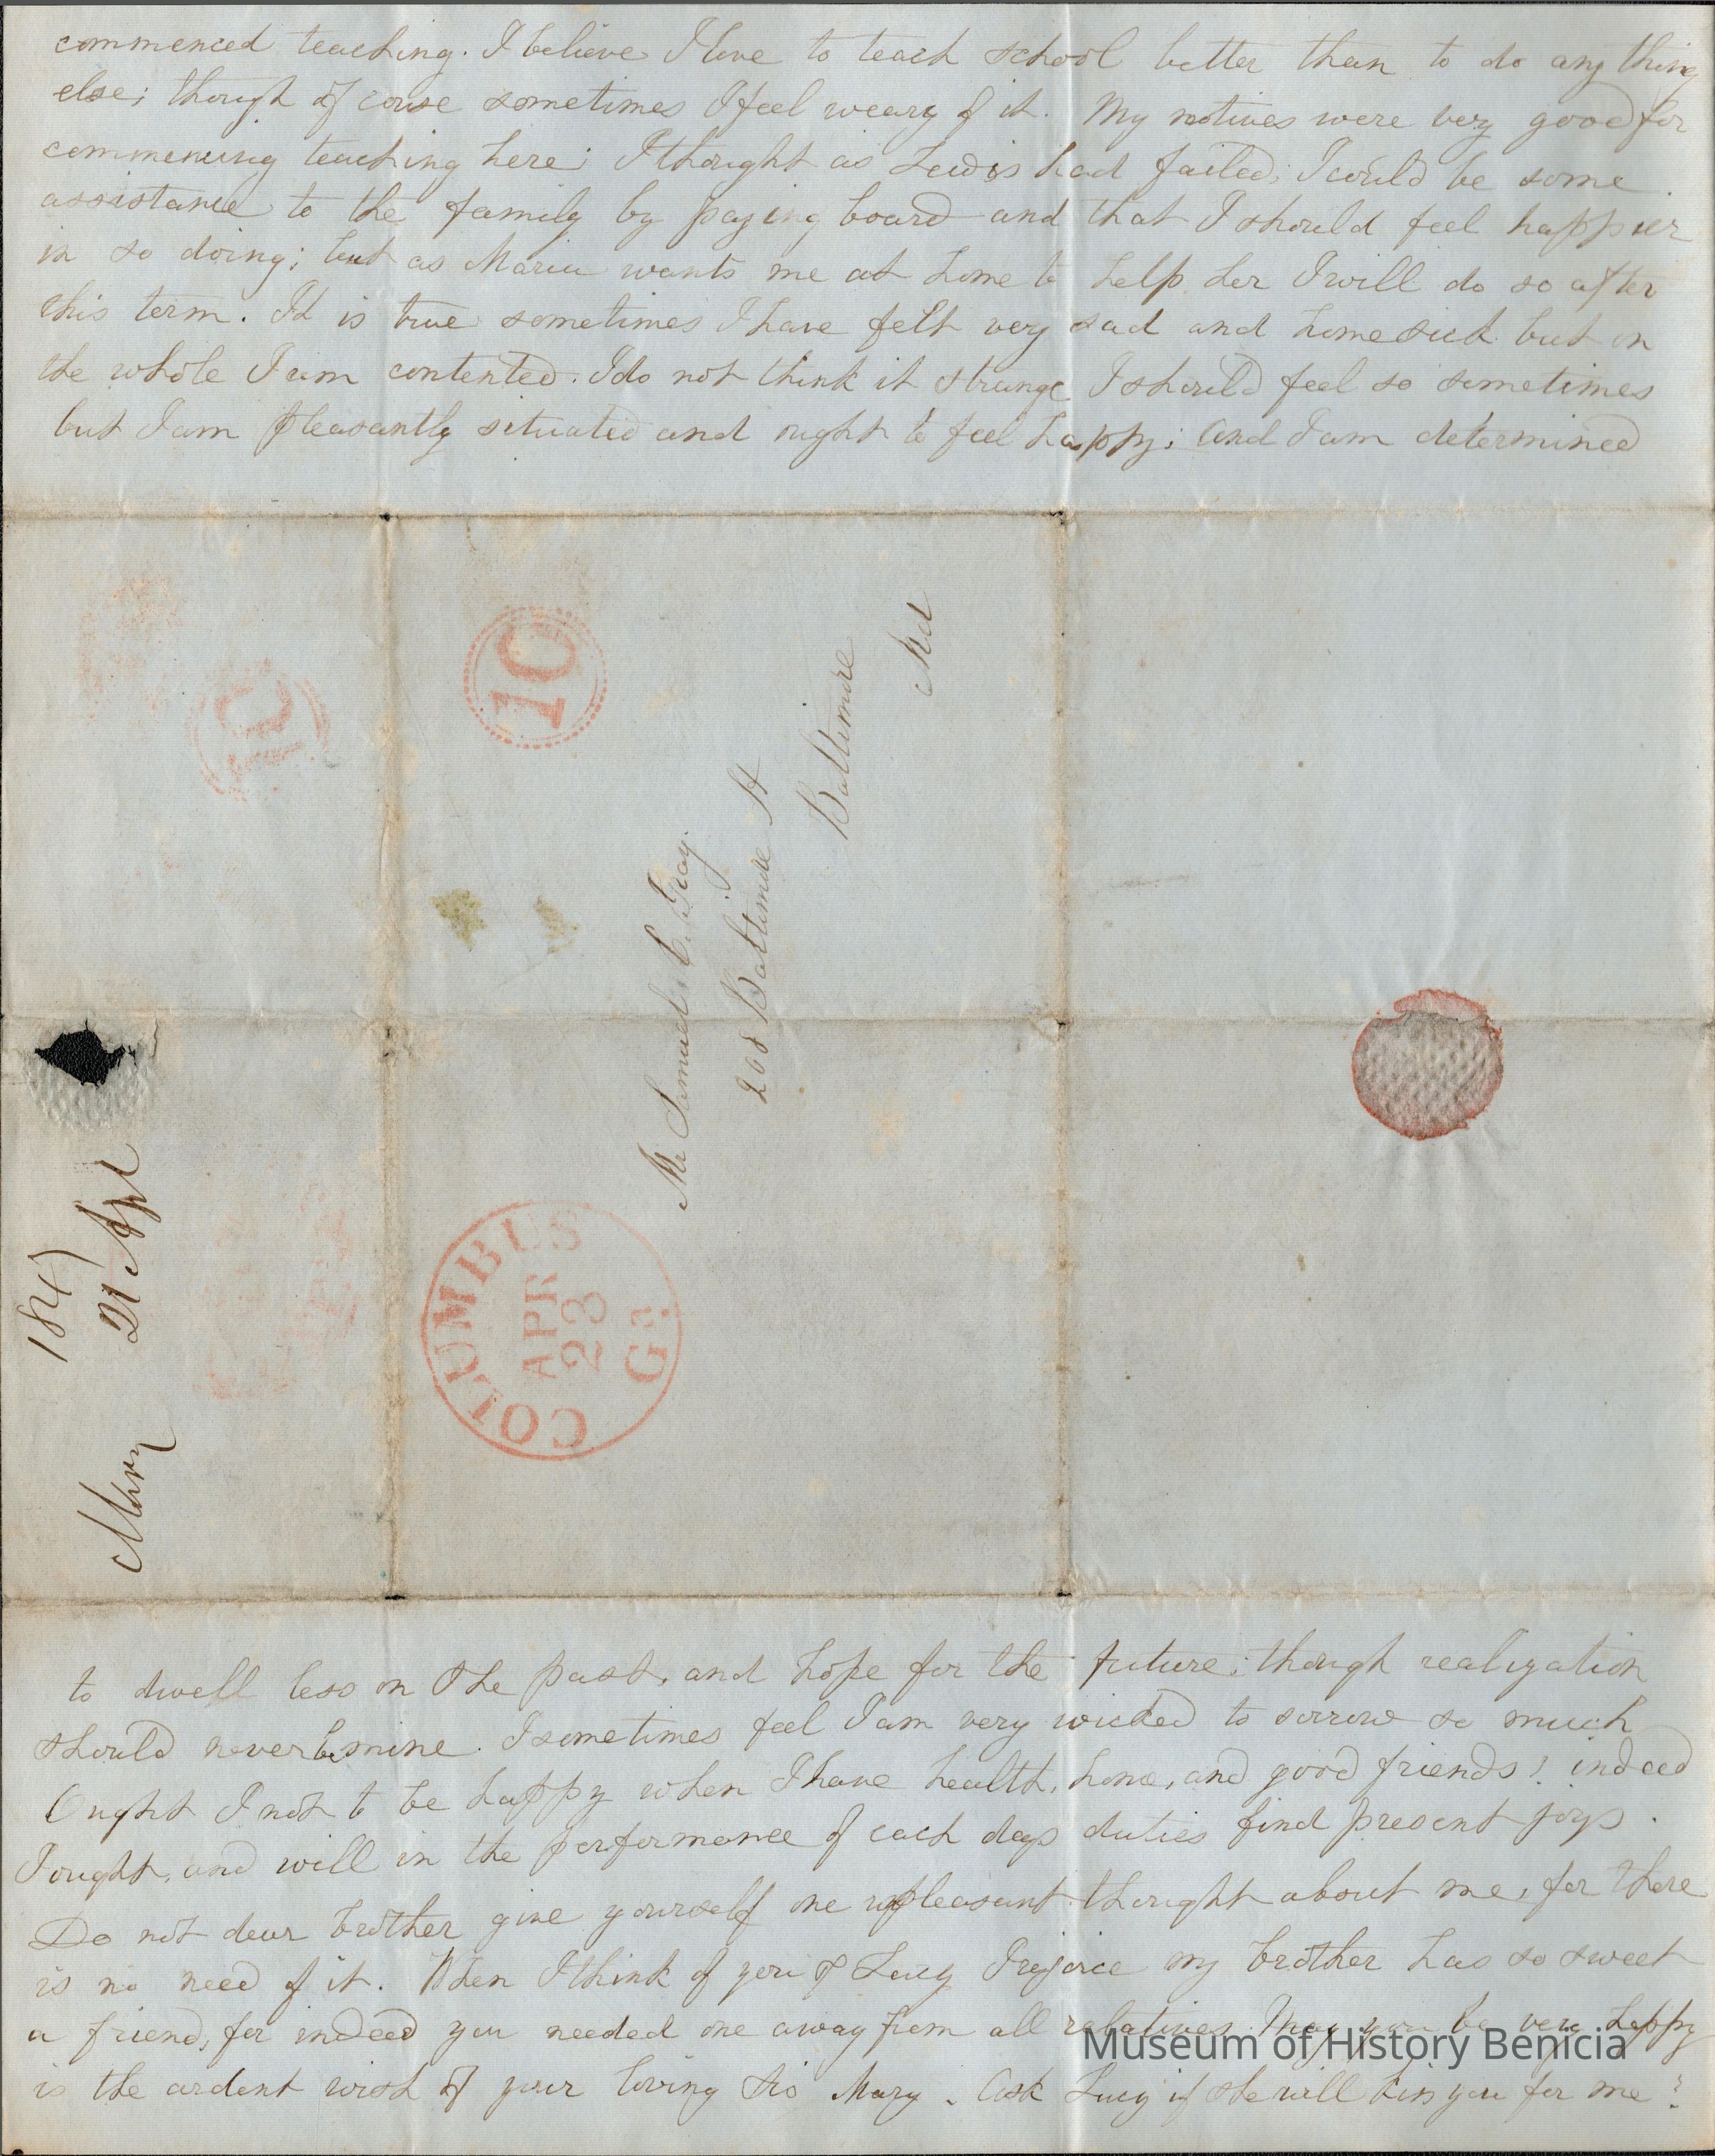 commenced teaching. I believe I love to teach school better than to do any thing
else; though of couse sometimes I feel weary of it. My motives were very good for
commencing teaching here; I thought as Lewis had failed, I could be some
assistance to the family by paying board and that I should feel happier
in so doing; but as Maria wants me at home to help her I will do so after
this term. It is true sometimes I have felt very sad and homesick but on
the whole I am contented. I do not think it strange I should feel so sometimes
but I am pleasantly situated and ought to feel happy; and I am determined
10
10
Mr Samuel C. Gray
208 Baltimore St
Baltimore
Md
COLUMBUS
APR
23
Ga.
1847
21 Apl
Mary
to dwell less on the past, and hope for the future; though realization
should never be mine. I sometimes feel I am very wicked to sorrow so much
Ought I not to be happy when I have health, home, and good friends! indeed
I ought, and will in the performance of each days duties find present joys.
Do not dear brother give yourself one unpleasant thought about me, for there
is no need of it. When I think of you & Lucy I rejoice my brother has so sweet
a friend, for indeed you needed one away from all relatives. May you be very happy
is the ardent wish of your loving Sis Mary. Ask Lucy if she will kiss you for me?
Museum of History Benicia